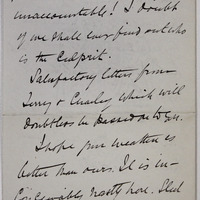 unaccountable! I doubt
if we shall ever find out who
is the culprit.
Satisfactory letters from
Terry & Charley which will
doubtless be passed on to you.
I hope your weather is
better than ours. It is in-
conceivably nasty here. Sled